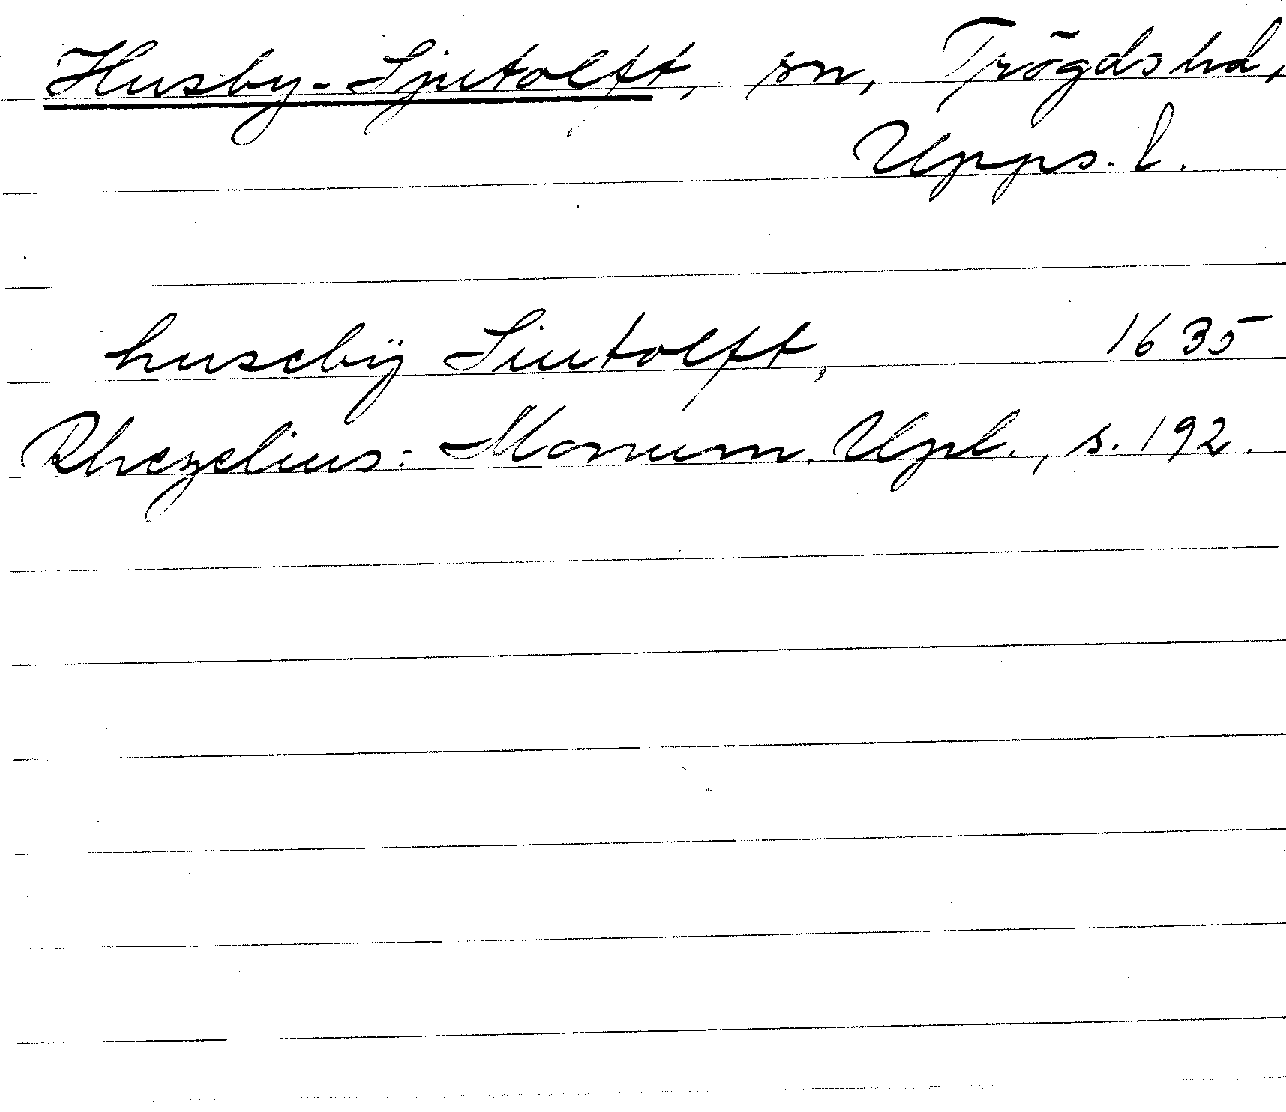 Husby-Sjutolft, sn, Trögds hd,
Upps. l.
husebÿ Siutolft, 1635
Rhezelius: Monum. Upl., s. 192.